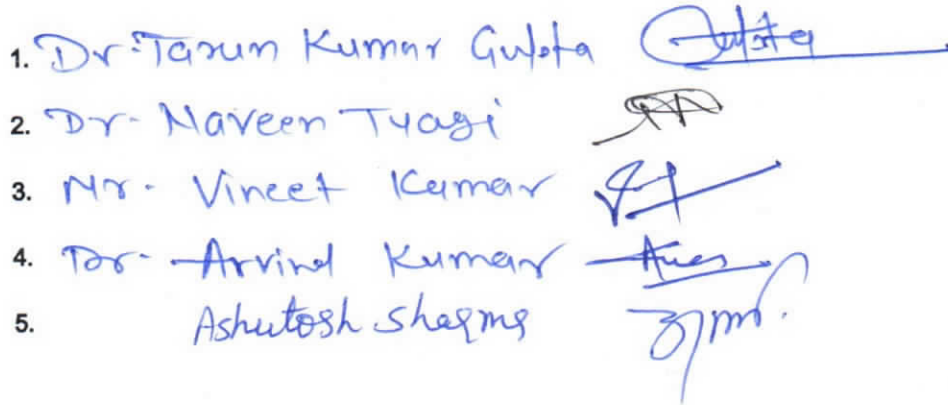 1. Dr. Tarun Kumar Gupta Gupta
2. Dr. Naveen Tyagi
3. Mr. Vineet Kumar
4. Dr. Arvind Kumar
5. Ashutosh Sharma